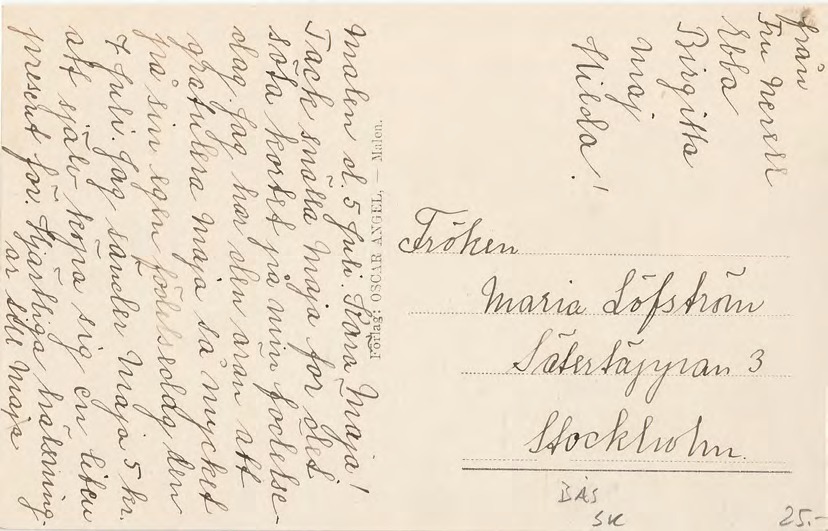 Malen d. 5 Juli. Kära Maja!
Tack snälla Maja för det
söta kortet på min födelse-
dag. Jag har den äran att
gratulera Maja så mycket
på sin egen födelsedag den
7 Juli. Jag sänder Maja 5 kr.
att själv köpa sig en liten
present för. Hjärtliga hälsning-
ar
Maja
från
Fru
Ebba
Birgitta
Maj
Hilda!
Förlag: OSCAR ANGEL, — Malen.
Fröken
Maria Löfström
Sätertäppan 3
Stockholm.
BÅS
SK
25.-